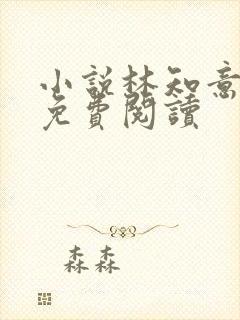 小說林知意
免費閱讀
森森